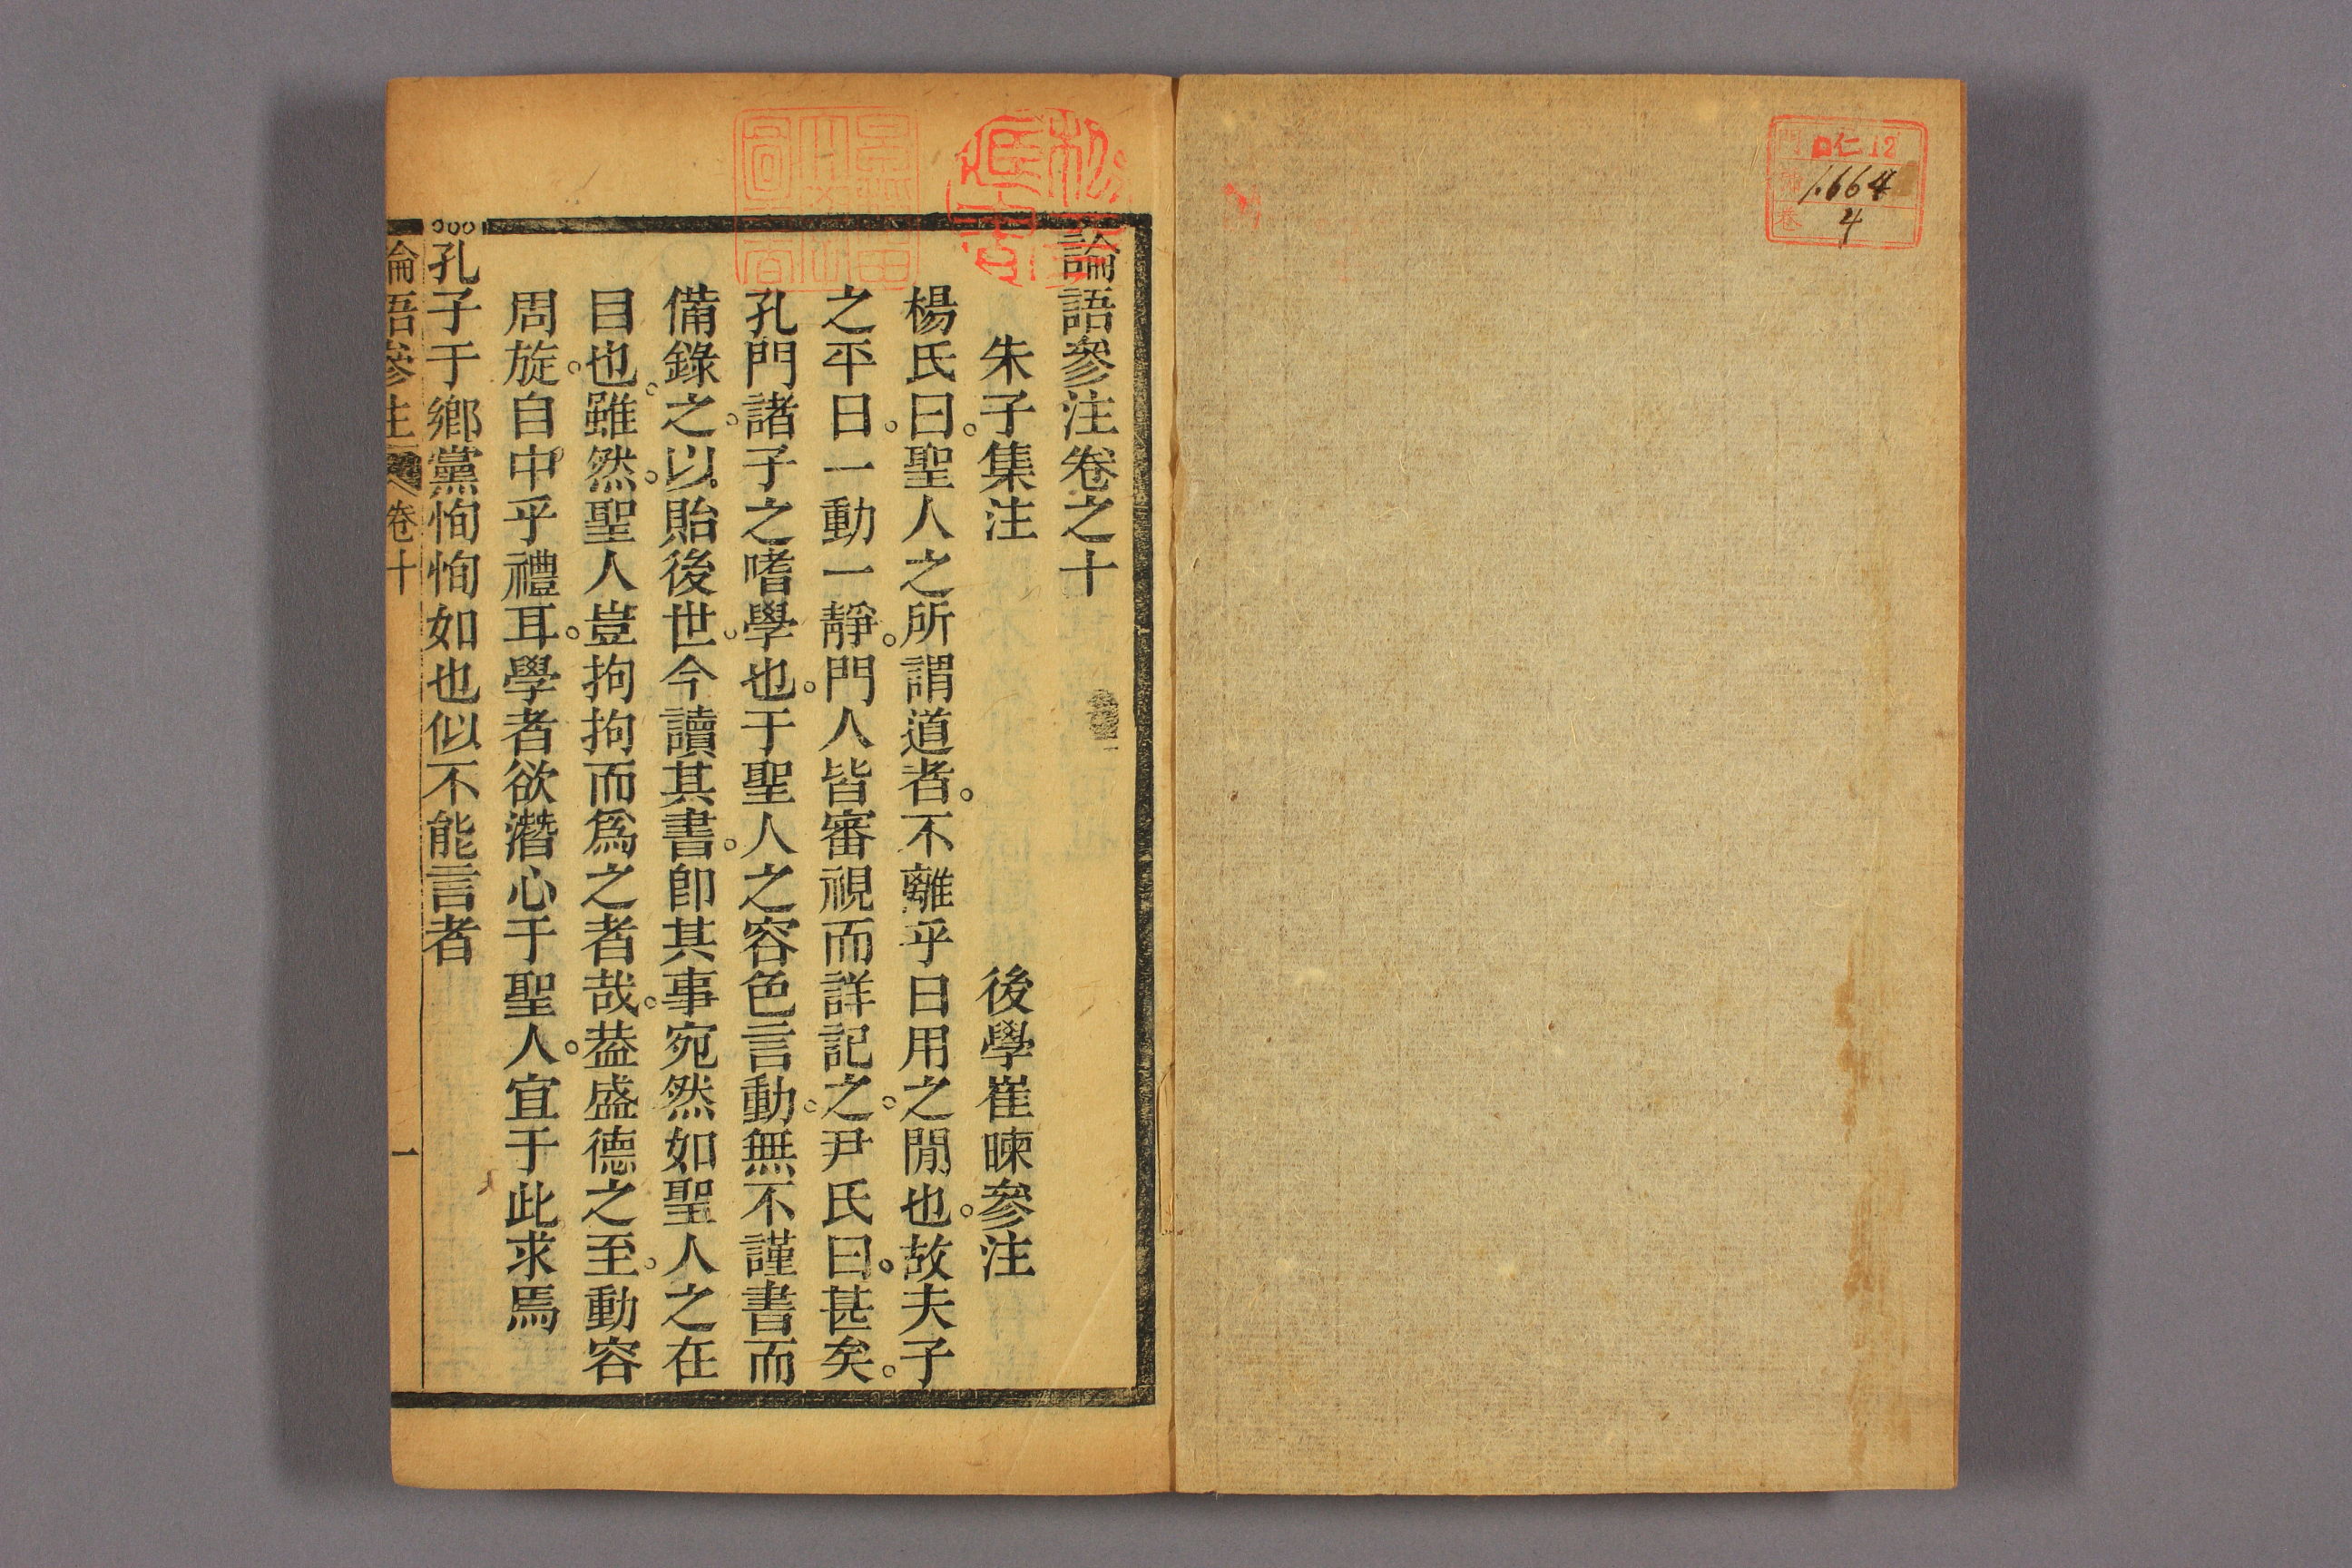 門 口仁12
1.664
卷 4
論語參注卷之十
朱子集注 後學崔暕參注
楊氏曰。聖人之所謂道者。不離乎日用之閒也。故夫子
之平日。一動一靜。門人皆審視而詳記之。尹氏曰。甚矣。
孔門諸子之嗜學也。于聖人之容色言動。無不謹書而
備錄之。以貽後世。今讀其書。卽其事宛然如聖人之在
目也。雖然。聖人豈拘拘而爲之者哉。葢盛德之至。動容
周旋。自中乎禮耳。學者欲潛心于聖人。宜于此求焉
孔子于鄉黨恂恂如也似不能言者
論語參注 卷十 一